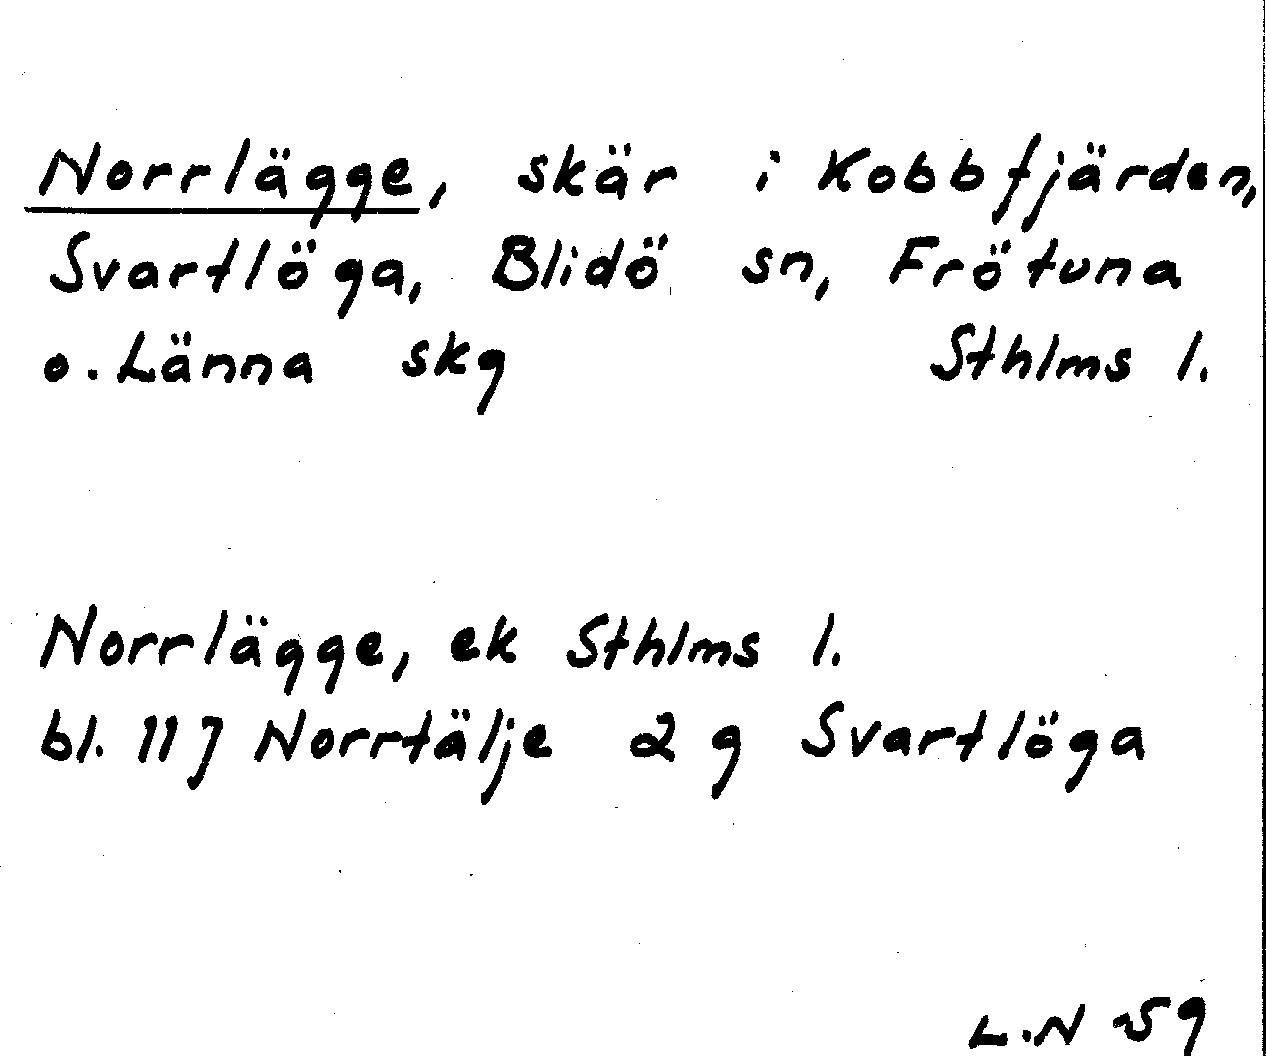 Norrlägge, skär i Kobbfjärden,
Svartlöga, Blidö sn, Frötuna
o. Länna skg Sthlms l.
Norrlägge, ek Sthlms l.
bl. 117 Norrtälje 2 g Svartlöga
L.N -59